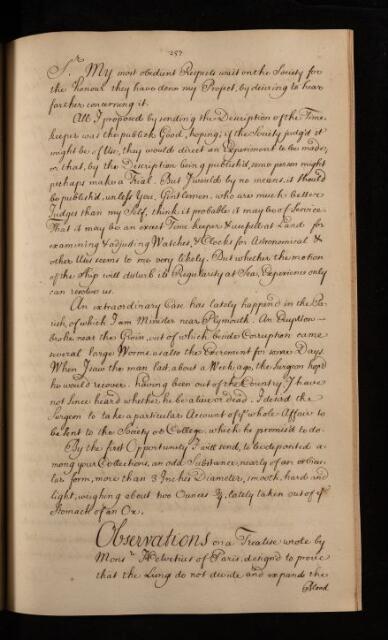 257
Sr. My most obedient Respects wait on the Society for
the honour they have done my Project, by desiring to hear
farther concerning it.
All I proposed by sending the Description of the Time-
keeper was the publick Good, hoping, if the Society judg'd it
might be of Use, they would direct an Experiment to be made,
or that, by the Description being publish'd, some person might
perhaps make a Trial. But I would by no means, it should
be publish'd, unless You, Gentlemen, who are much better
Judges than my Self, think it probable it may be of Service.
That it may be an exact Time keeper & usefull at Land for
examining & adjusting Watches, & Clocks for Astronomical &
other Uses seems to me very likely. But whether the motion
of the Ship will disturb its Regularity at Sea, Experience only
can resolve us.
An extraordinary Case has lately happend in the Pa-
rish, of which I am Minister near Plymouth. An Eruption
broke near the Groin, out of which besides Corruption came
several large Worms, & also the Excrement for some Days.
When I saw the man last, about a Week ago, the Surgeon hop'd
he would recover. having been out of the Country, I have
not since heard whether he be alive or dead. I desir'd the
Surgeon to take a particular Account of ye whole Affair to
be sent to the Society or College, which he promis'd to do.
By the first Opportunity I will send, to be deposited a-
mong your Collections, an odd Substance, nearly of an orbicu-
lar form, more than 3 Inches Diameter, smooth, hard and
light, weighing about two Ounces lately taken out of ye
Stomach of an Ox.
Observations on a Treatise wrote by
Monsr. Helvetius of Paris, design'd to prove
that the Lung do not divide and expands the
Blood